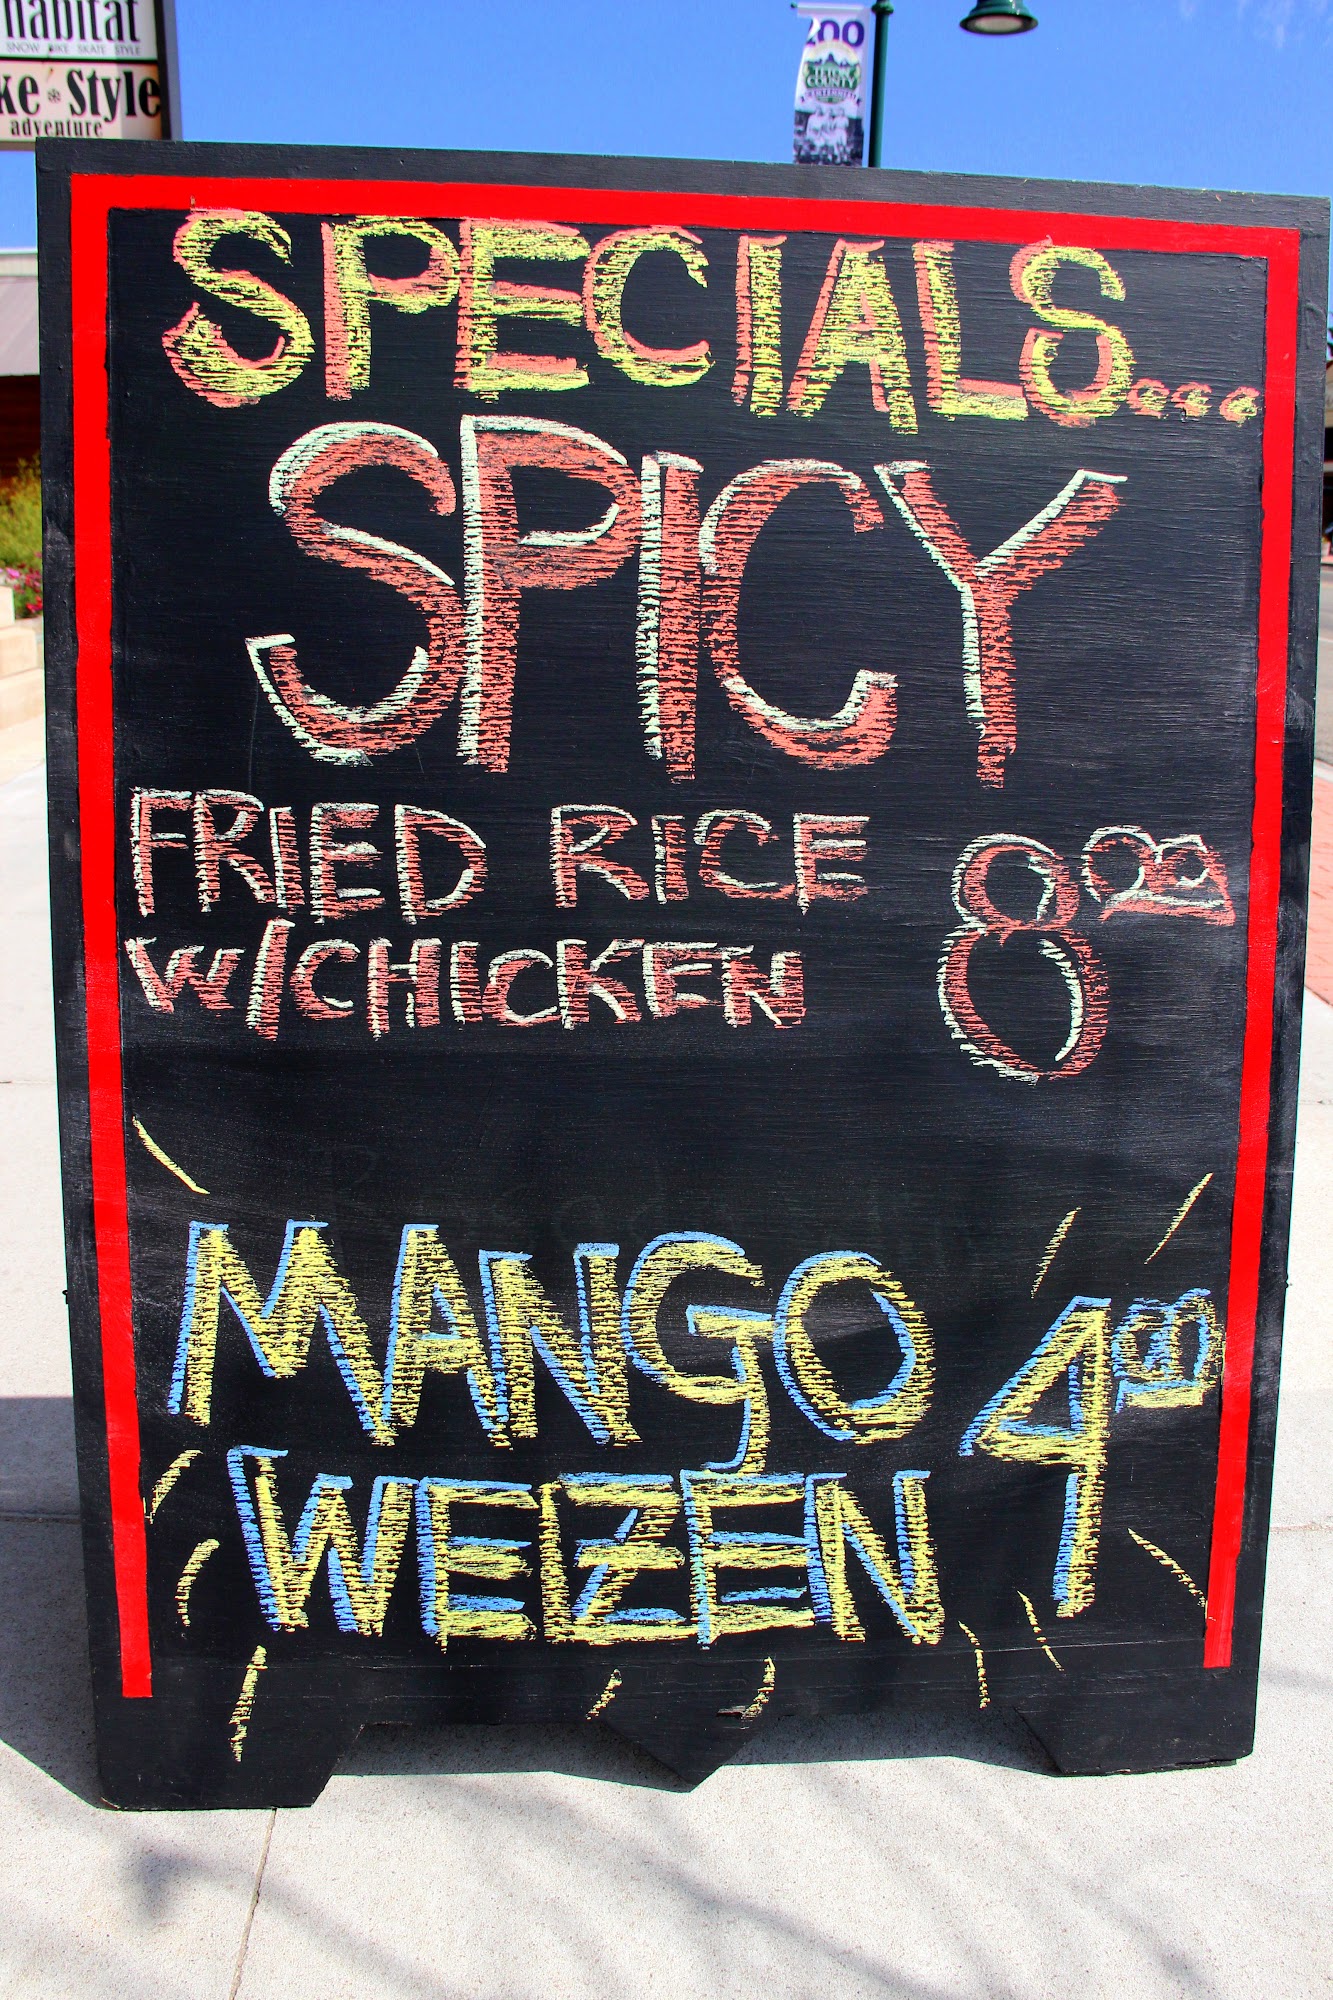 habitat
SNOW BIKE SKATE STYLE
ke Style
adventure
100
TETON
COUNTY
CENTENNIAL
SPECIALS...
SPICY
FRIED RICE
W/CHICKEN
8
MANGO
WEIZEN
4